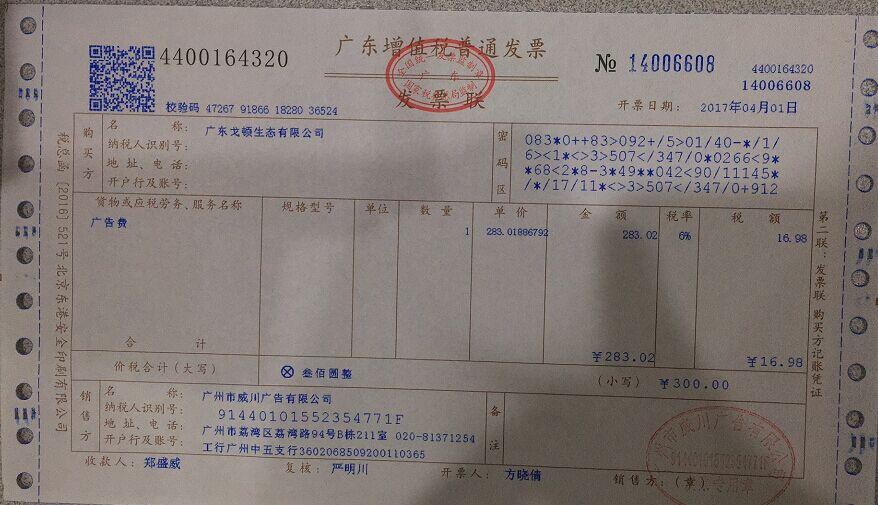 4400164320
广东增值税普通发票
发票联
全国统一发票监制章
广东
№ 14006608
4400164320
14006608
校验码 47267 91866 18280 36524
开票日期: 2017年04月01日
购买方
名称: 广东戈顿生态有限公司
纳税人识别号:
地址、电话:
开户行及账号:
密码区
083*0++83>092+/5>01/40-*/1/
6><1*<>3>507</347/0*0266<9*
*68<2*8-3*49**042<90/11145*
/*/17/11*<>3>507</347/0+912
货物或应税劳务、服务名称 规格型号 单位 数量 单价 金额 税率 税额
广告费 1 283.01886792 283.02 6% 16.98
合计 ¥283.02 ¥16.98
价税合计(大写) ⊗ 叁佰圆整 (小写) ¥300.00
销售方
名称: 广州市威川广告有限公司
纳税人识别号: 91440101552354771F
地址、电话: 广州市荔湾区荔湾路94号B栋211室 020-81371254
开户行及账号: 工行广州中五支行3602068509200110365
备注
收款人: 郑盛威 复核: 严明川 开票人: 方晓倩 销售方:(章)
广州市威川广告有限公司
91440101552354771F
发票专用章
税总函〔2016〕521号北京东港安全印刷有限公司
第二联:发票联 购买方记账凭证